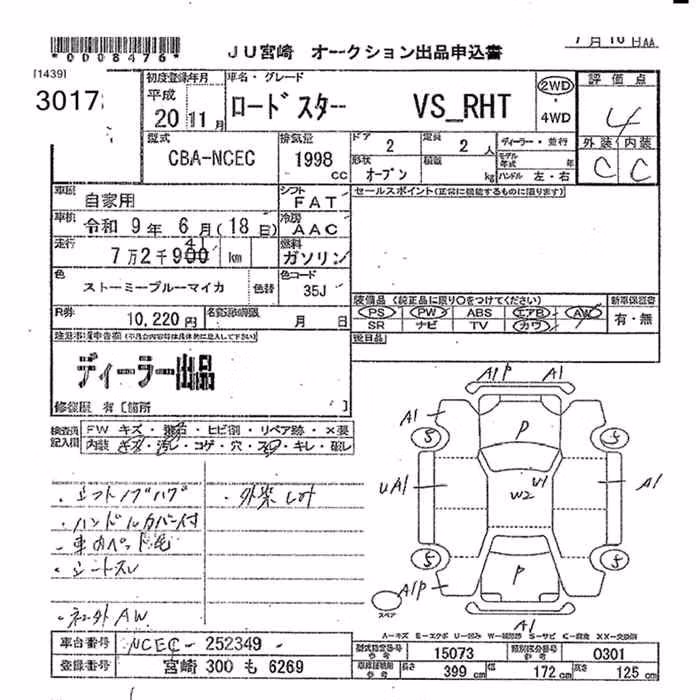 *0008476*
JU宮崎 オークション出品申込書
7月10日AA
[1439]
3017
初度登録年月
平成
20 11月
車名・グレード
ロードスター VS_RHT
2WD
・
4WD
評価点
4
外装 内装
C C
型式
CBA-NCEC
排気量
1998
cc
ドア
2
定員
2 人
形状
オープン
積載
kg
ディーラー・並行
モデル年式 年
ハンドル 左・右
車歴
自家用
シフト
FAT
セールスポイント(正常に機能するものに限ります)
車検
令和 9年 6月(18日)
冷房
AAC
走行
7万2千900 km
41
燃料
ガソリン
色
ストーミーブルーマイカ
色替
色コード
35J
装備品 (純正品に限り○をつけてください)
PS PW ABS エアB AW
SR ナビ TV カワ
新車保証書
有・無
R券
10,220円
名変期限
月 日
後日品
ディーラー出品
修復歴 有 [箇所 ]
検査員記入欄
FW キズ・飛石・ヒビ割・リペア跡・×要
内装 キズ・汚レ・コゲ・穴・スレ・キレ・破レ
・シフトノブハゲ
・外装しみ
・ハンドルカバー付
・車内ペット毛
・シートスレ
・ネコ外AW
A1P A1
A1
P
5 5
UA1
U1
W2
A1
5 5
A1P
P
スペア
A1
A-キズ E-エクボ U-凹み W-補修跡 S-サビ C-腐食 XX-交換済
車台番号
NCEC-252349
登録番号
宮崎 300 も 6269
型式指定番号
参考
15073
類別区分番号
参考
0301
長さ
399 cm
幅
172 cm
高さ
125 cm